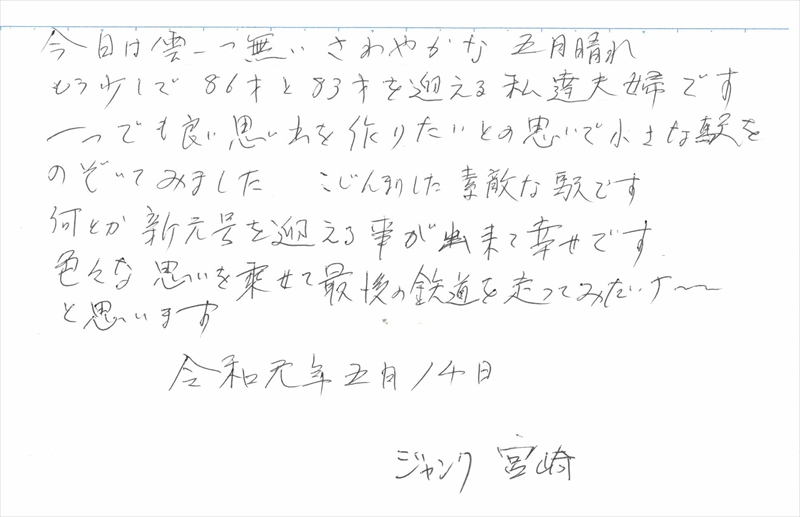 今日は雲一つ無いさわやかな五月晴れ
もう少しで86才と83才を迎える私達夫婦です
一つでも良い思い出を作りたいとの思いで小さな駅を
のぞいてみました こじんまりした素敵な駅です
何とか新元号を迎える事が出来て幸せです
色々な思いを乗せて最後の鉄道を走ってみたいナ〜〜
と思います
令和元年五月14日
ジャンク 宮崎